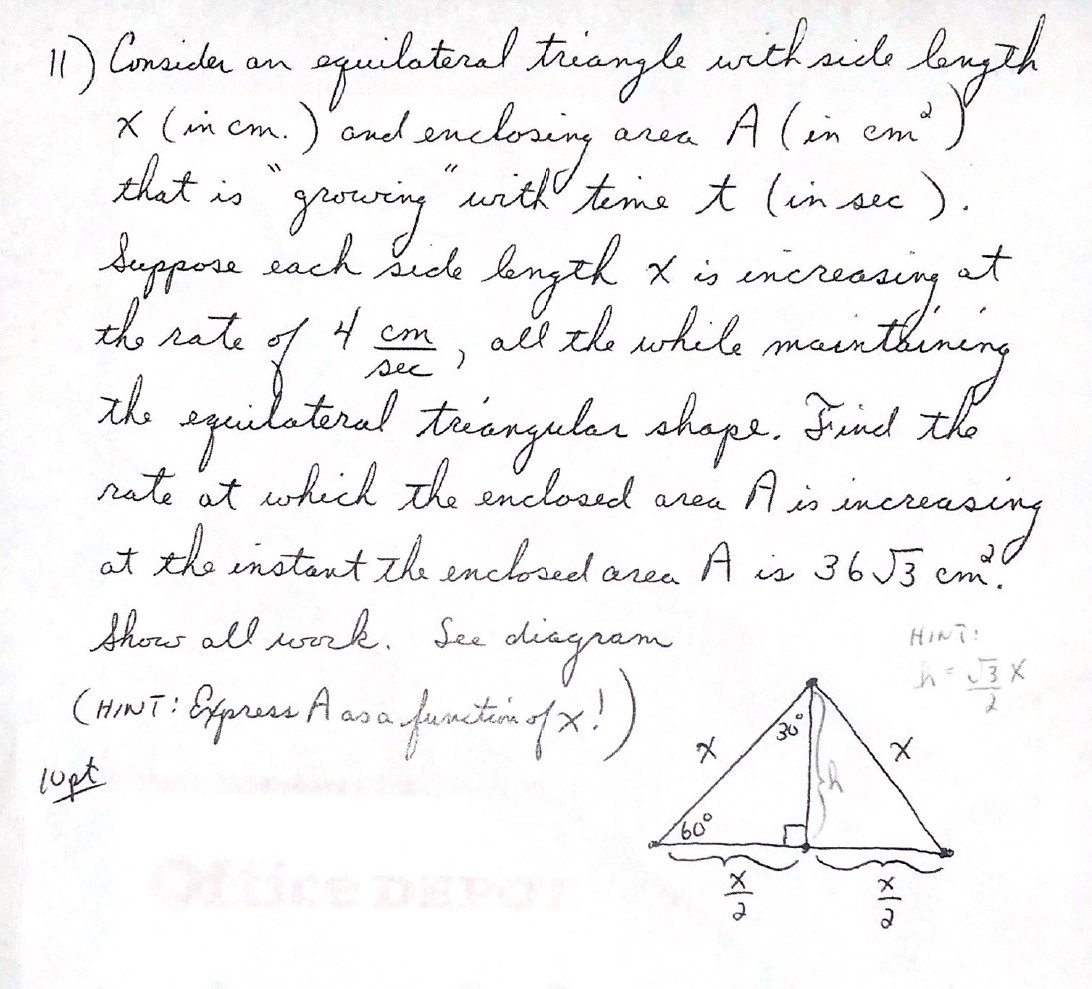 11) Consider an equilateral triangle with side length
x (in cm.) and enclosing area A (in cm²)
that is "growing" with time t (in sec).
Suppose each side length x is increasing at
the rate of 4 cm/sec, all the while maintaining
the equilateral triangular shape. Find the
rate at which the enclosed area A is increasing
at the instant the enclosed area A is 36√3 cm².
Show all work. See diagram
(HINT: Express A as a function of x!)
10pt
HINT:
h = √3x/2
x
30°
h
x
60°
x/2
x/2
Office DEPOT